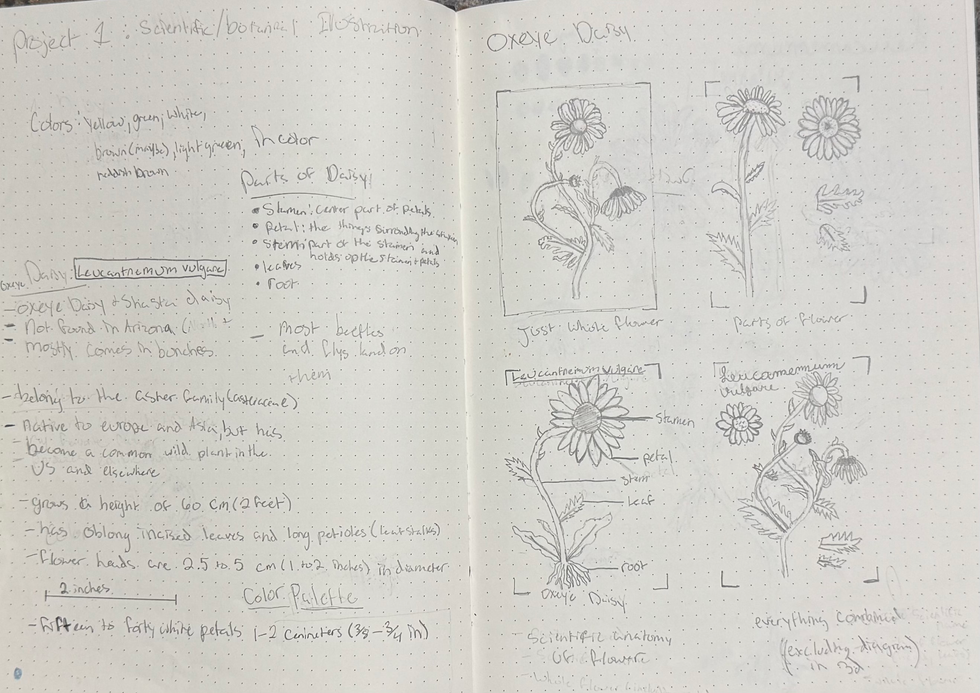 Project 1: Scientific/botanical Illustration
Colors: yellow, green, white,
brown (maybe), light green, in color
reddish brown
Parts of Daisy:
• Stamen: center part of petals
• Petal: the things surrounding the stamen
• Stem: part of the stamen and
holds up the stamen + petals
• leaves
• root
Oxeye Daisy: Leucantremum vulgare
- oxeye Daisy + Shasta daisy
- Not found in Arizona
- mostly comes in bunches
- most beetles
and flys land on
them
- belong to the aster family (asteraceae)
- native to europe and Asia, but has
become a common wild plant in the
US and elsewhere
- grows to a height of 60 cm (2 feet)
- has oblong incised leaves and long petioles (leaf stalks)
- flower heads are 2.5 to 5 cm (1 to 2 inches) in diameter
2 inches
Color Palette
- fifteen to forty white petals 1-2 cenimeters (3/5 - 3/4 in)
Oxeye Daisy
Just whole flower
parts of flower
Leucantremum vulgare
stamen
petal
stem
leaf
root
Oxeye Daisy
- Scientific anatomy
of flower
Leucamemmum
vulgare
everything combined
(excluding diagram)
in 3d